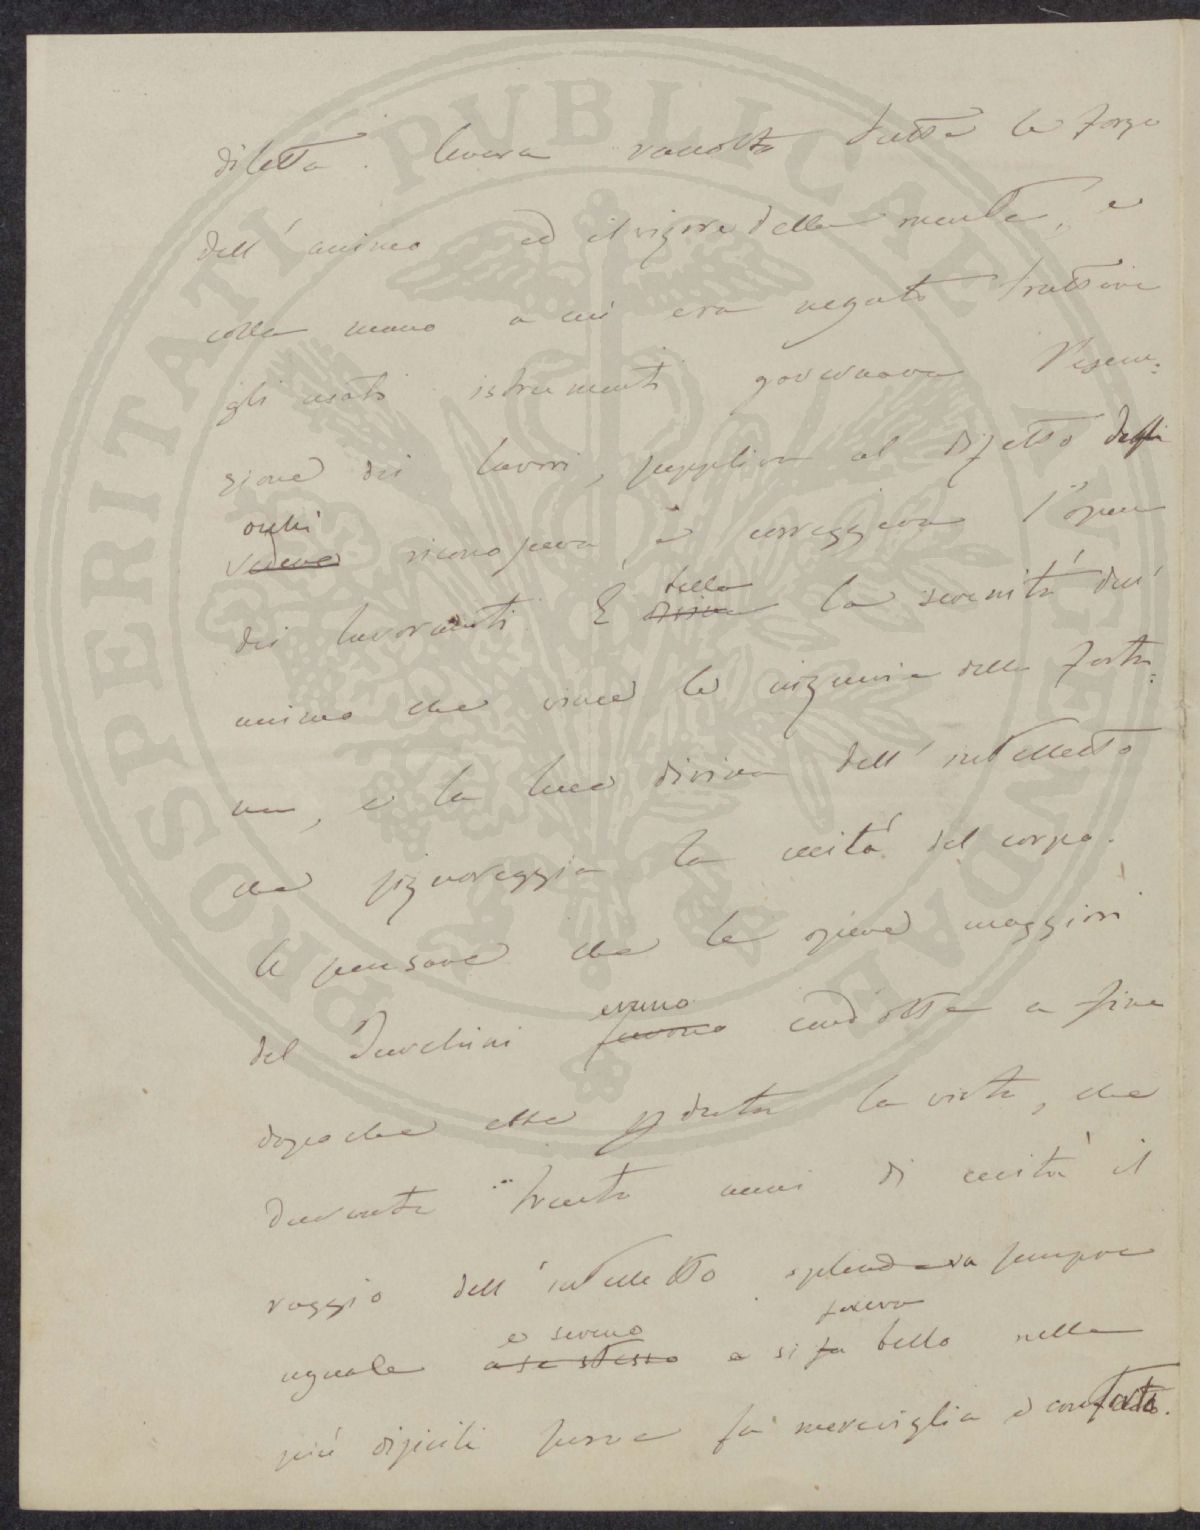 PROSPERITATI PVBLICAE AVGENDAE
diletta. Aveva raccolto tutte le forze
dell'animo ed il vigore della mente, e
colla mano a cui era negato trattare
gli usati istrumenti governava l'esecu:
zione dei lavori, suppliva al difetto degli
occhi
vedeva riconosceva e correggeva l'opera
dei lavoranti. È la serenità dell'
bella
animo che vince le ingiurie della fortu:
na, e la luce divina dell'intelletto
che signoreggia la cecità del corpo.
Il pensare che le opere maggiori
erano
del Turchini furono condotte a fine
dopo che ebbe perduta la vista, che
durante trenta anni di cecità il
raggio dell'intelletto splendeva sempre
e sereno faceva
uguale a se stesso e si fa bello nella
più difficili prove fa meraviglia e conforto.